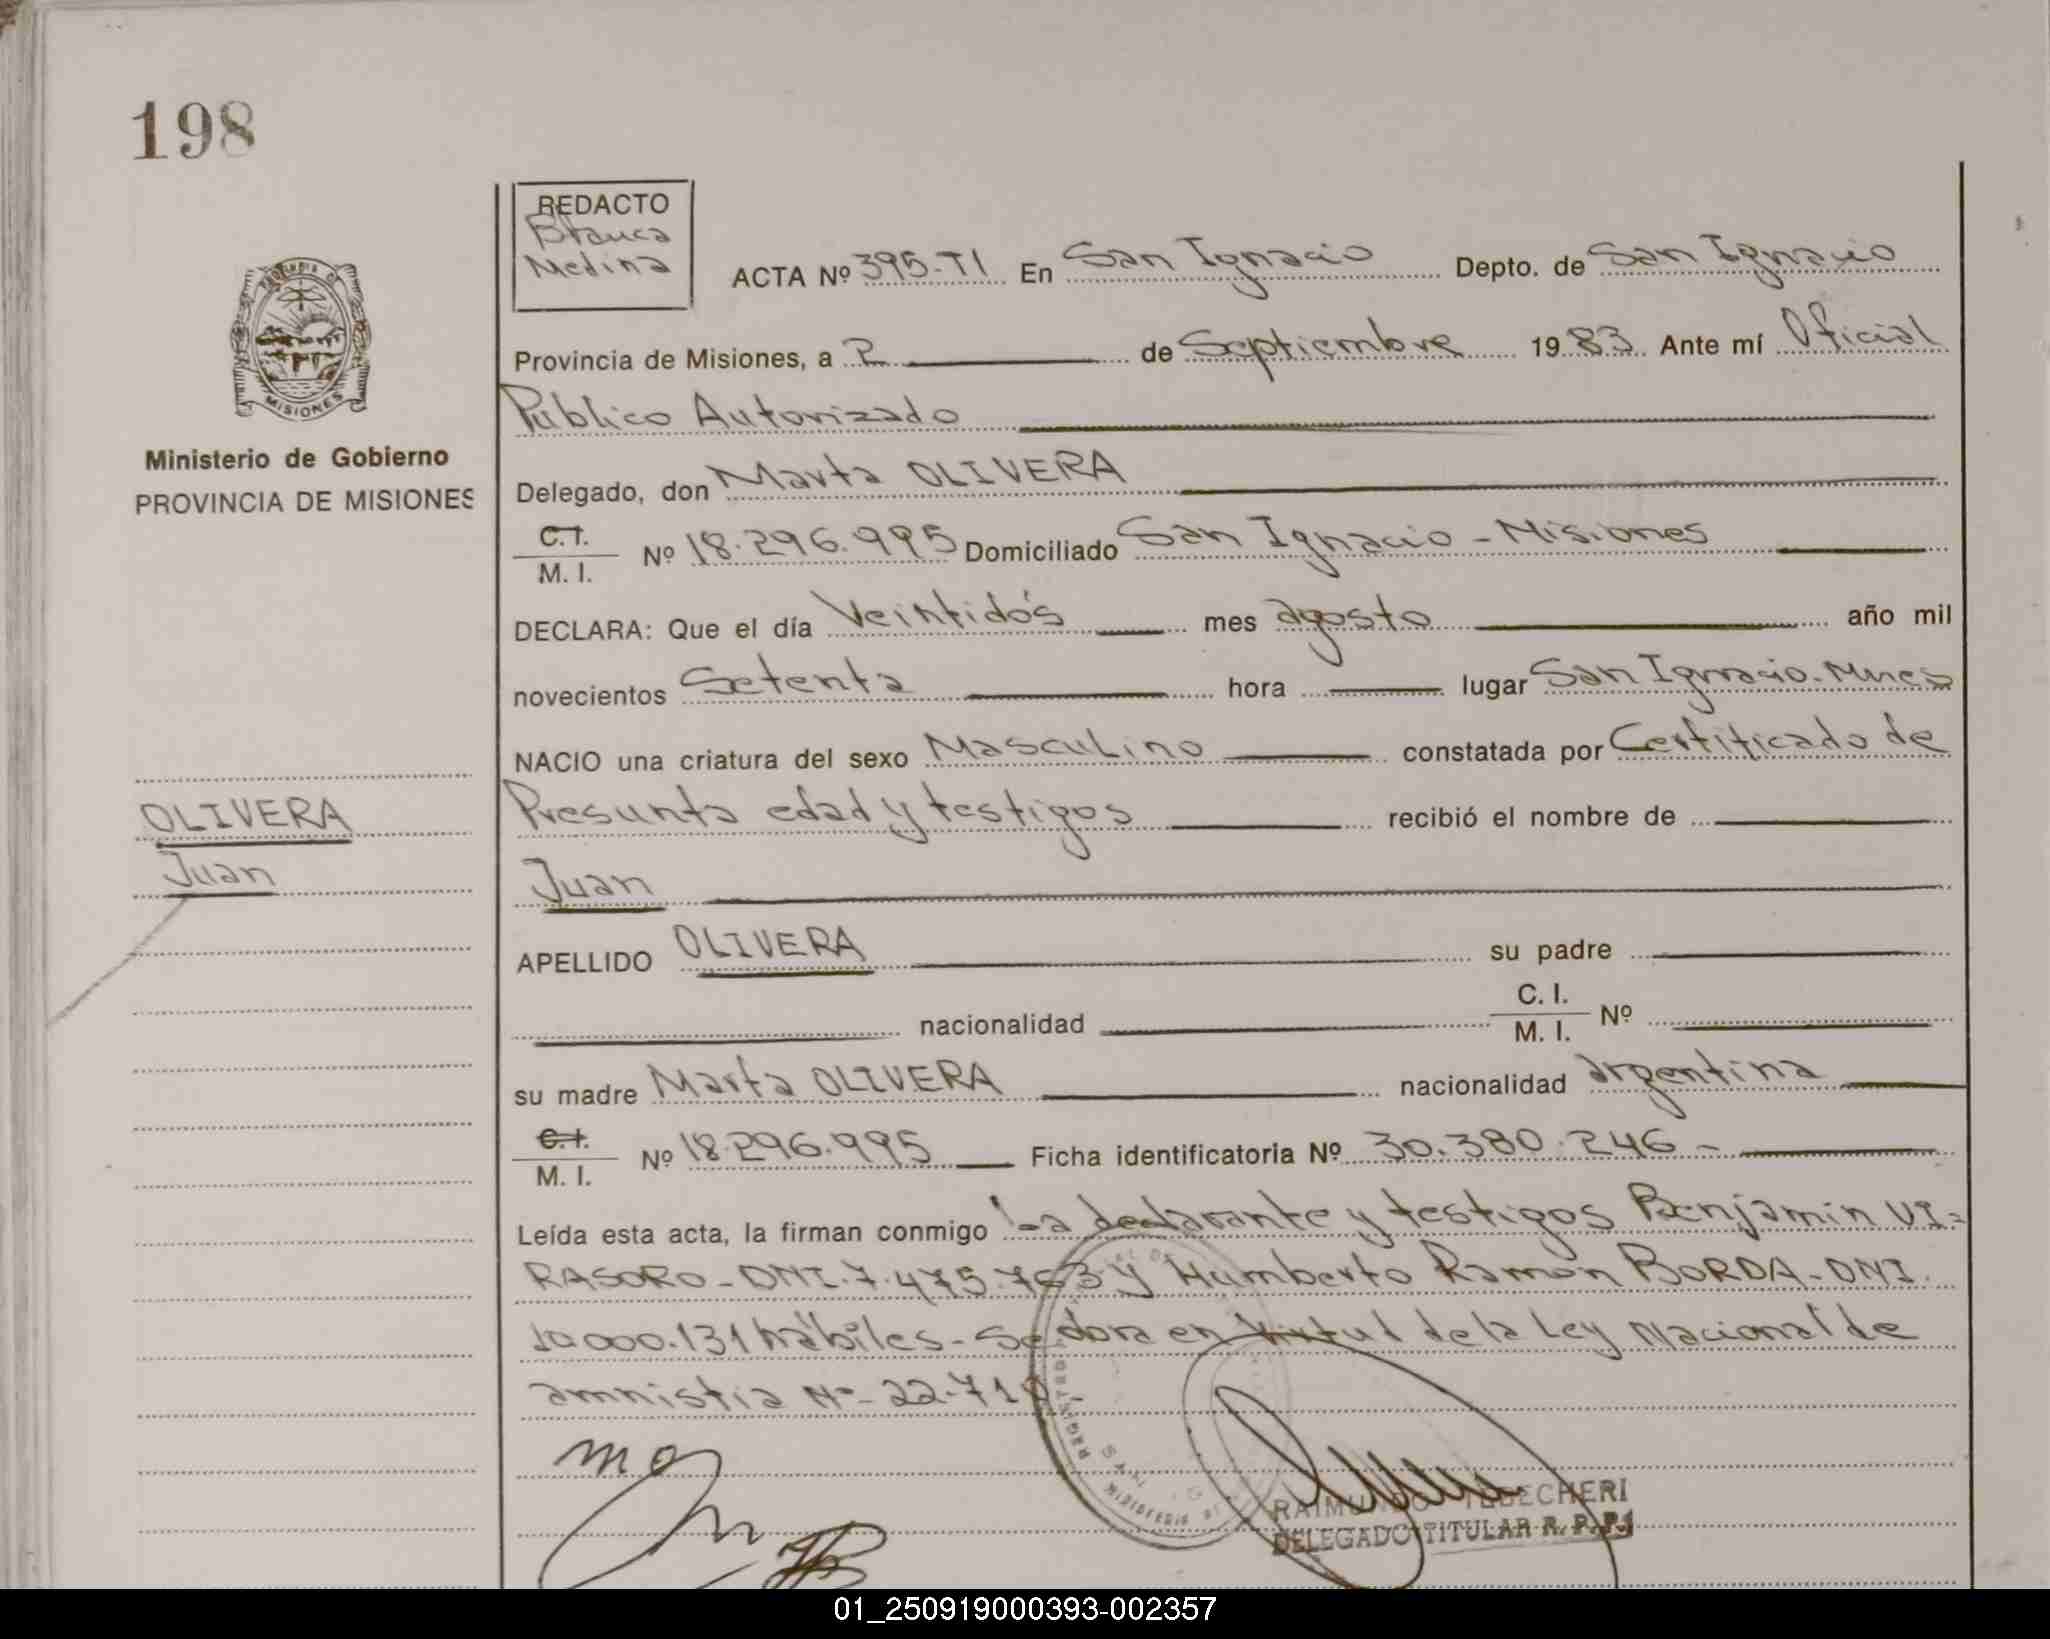 198
REDACTO
Blanca
Medina
ACTA Nº 395-TI En San Ignacio Depto. de San Ignacio
Provincia de Misiones, a 2 de Septiembre 1983 Ante mí Oficial
Público Autorizado
MISIONES
Ministerio de Gobierno
PROVINCIA DE MISIONES
Delegado, don Marta OLIVERA
C.I. M. I. Nº 18.296.995 Domiciliado San Ignacio - Misiones
DECLARA: Que el día Veintidós mes agosto año mil
novecientos Setenta hora lugar San Ignacio. Mnes
NACIO una criatura del sexo Masculino constatada por Certificado de
Presunta edad y testigos recibió el nombre de
OLIVERA
Juan
Juan
APELLIDO OLIVERA su padre
nacionalidad C. I. M. I. Nº
su madre Marta OLIVERA nacionalidad argentina
C.I. M. I. Nº 18.296.995 Ficha identificatoria Nº 30.380.246 -
Leída esta acta, la firman conmigo La declarante y testigos Benjamín VI=
RASORO - DNI. 7.475.763 y Humberto Ramón BORDA - DNI.
10.000.131 hábiles - Se dora en Virtud de la Ley Nacional de
amnistia Nº - 22.71
mo
RAIMUNDO TEBECHERI
DELEGADO TITULAR R. P. P.
01_250919000393-002357